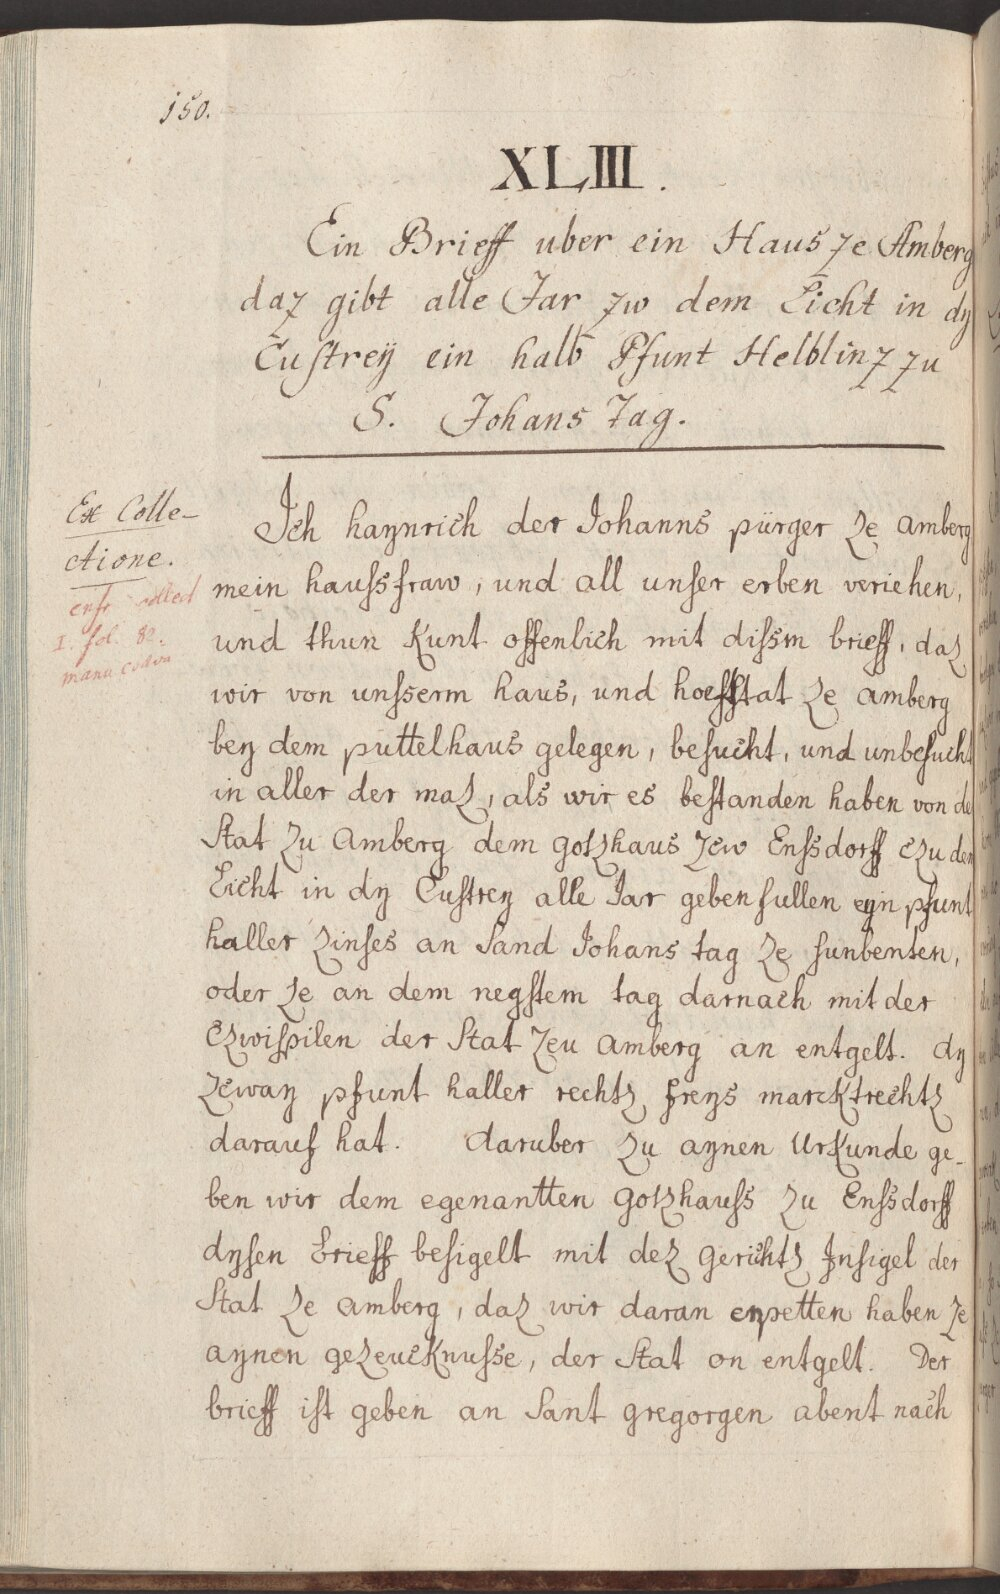 150.
XLIII.
Ein Brieff uber ein Haus ze Amberg
daz gibt alle Jar zw dem Licht in dy
Custreÿ ein halb Pfunt Helblinz zu
S. Johans Tag.
Ex Colle-
ctione.
I. fol. 82.
Ich haynrich der Johanns pürger ze amberg
mein haussfraw, und all unser erben veriehen,
und thun kunt offenlich mit dissm brieff, daz
wir von unsserm haus, und hoffstat ze amberg
bey dem puttelhaus gelegen, besucht, und unbesucht
in aller der maz, als wir es bestanden haben von de
Stat zu Amberg dem gotzhaus zcw Enssdorff czu den
Licht in dy Custrey alle Jar geben sullen eyn pfunt
haller zinses an Sand Johans tag ze sunbenten,
oder ze an dem negstem tag darnach mit der
Czwispilen der Stat zcu amberg an entgelt. dy
zcway pfunt haller rechtz freys marcktrechtz
darauf hat. daruber zu aynen Urkunde ge-
ben wir dem egenantten gotzhauss zu Enssdorff
dysen brieff besigelt mit dez gerichtz Insigel der
Stat ze amberg, daz wir daran erpetten haben ze
aynen gezeucknusse, der Stat on entgelt. Der
brieff ist geben an Sant gregorgen abent nach